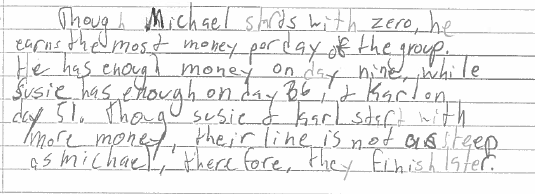 Though Michael starts with zero, he
earns the most money per day of the group.
He has enough money on day nine, while
Susie has enough on day 36, & Karl on
day 51. Thoug susie & Karl start with
more money, their line is not as steep
as michael, therefore, they finish later.